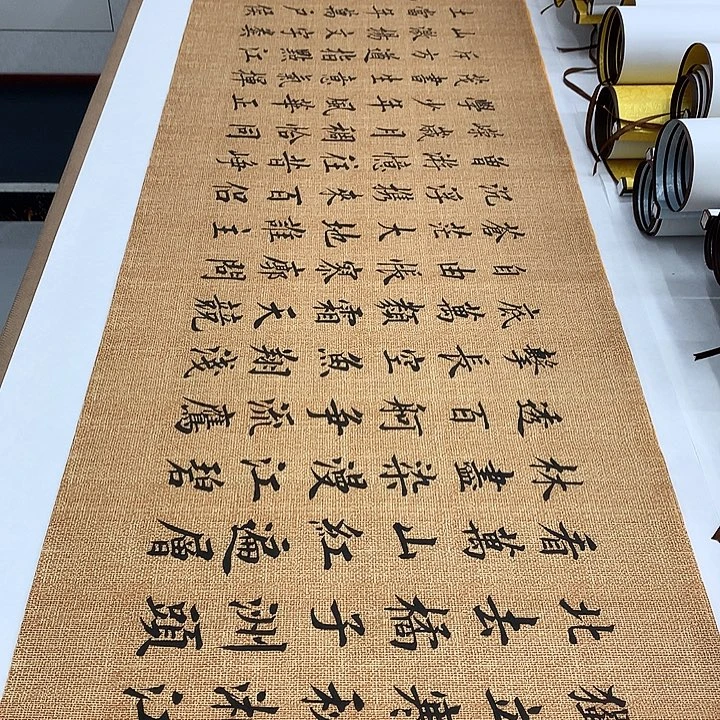 獨立寒秋湘江
北去橘子洲頭
看萬山紅遍層
林盡染漫江碧
透百舸争流鷹
擊長空魚翔淺
底萬類霜天競
自由悵寥廓問
蒼茫大地誰主
沉浮攜來百侣
曾游憶往昔崢
嶸歲月稠恰同
學少年風華正
茂書生意氣揮
斥方遒指點江
山激揚文字糞
土當年萬户侯